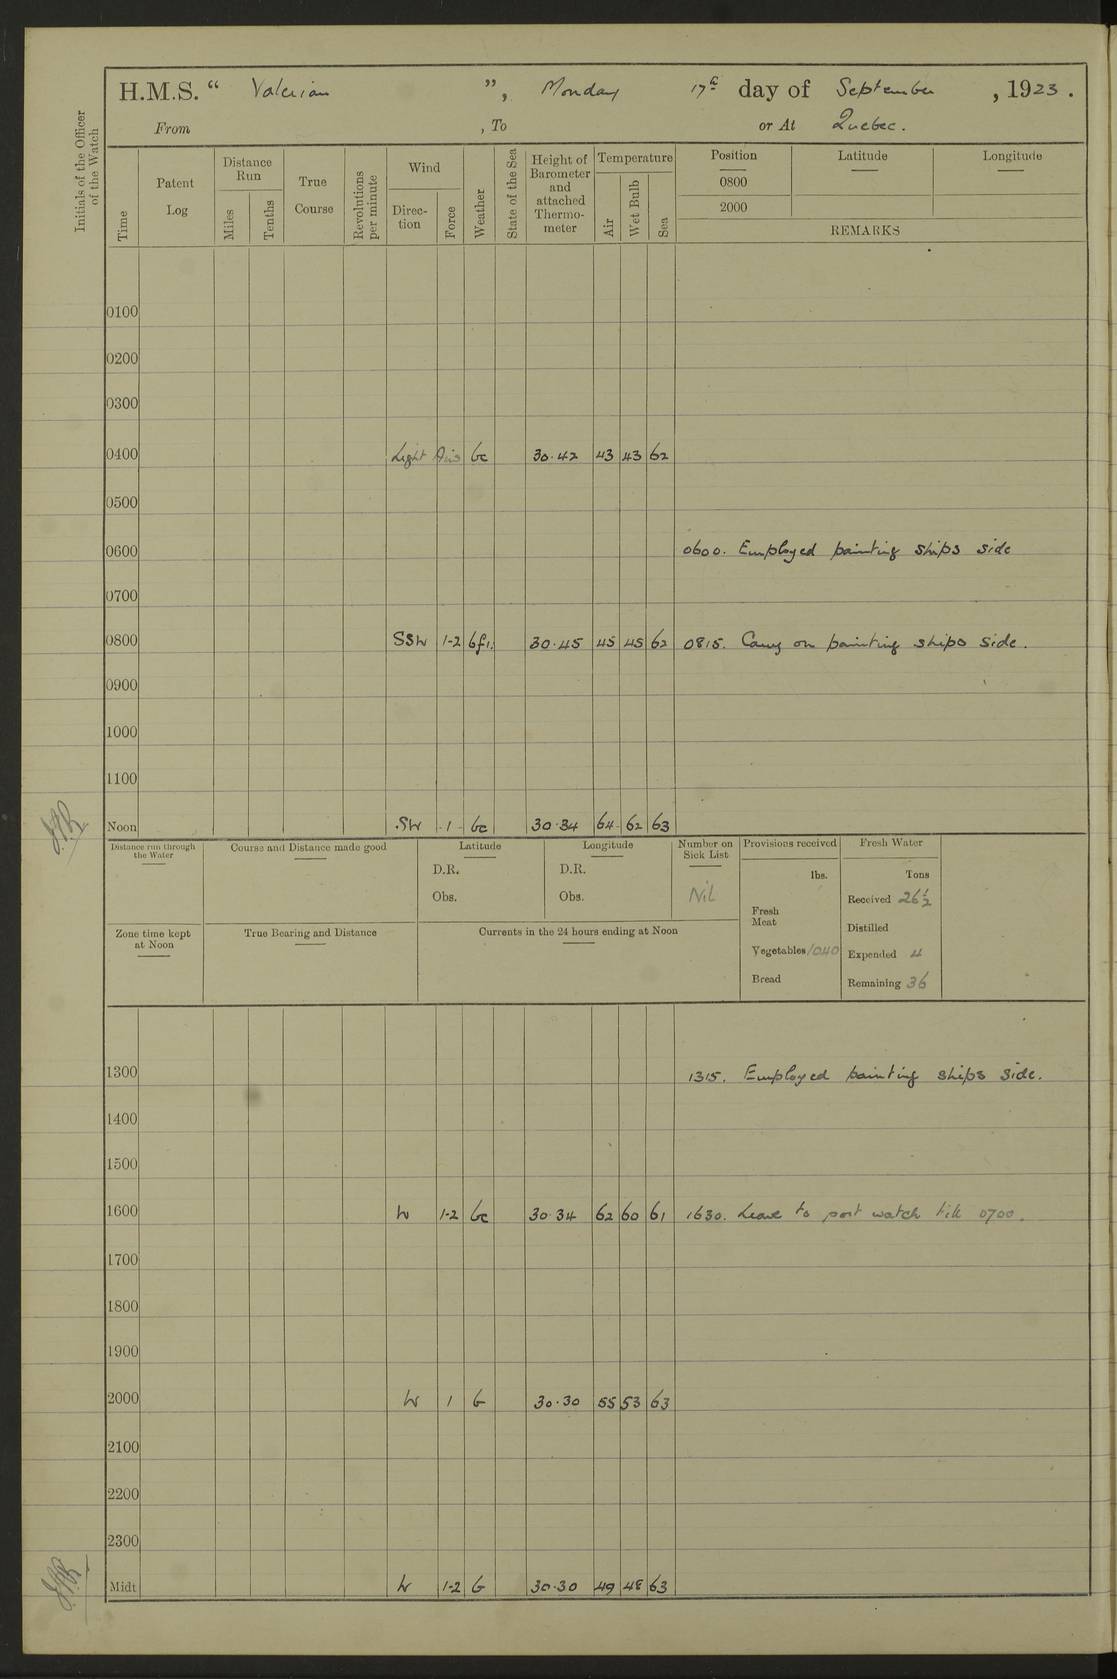 H.M.S. “ Valerian ”, Monday 17th day of September , 1923 .
From , To or At Quebec .
Initials of the Officer of the Watch
Time
Patent Log
Distance Run
Miles
Tenths
True Course
Revolutions per minute
Wind
Direc-tion
Force
Weather
State of the Sea
Height of Barometer and attached Thermo-meter
Temperature
Air
Wet Bulb
Sea
Position Latitude Longitude
0800
2000
REMARKS
0100
0200
0300
0400 Light Airs bc 30.42 43 43 62
0500
0600 0600. Employed painting ships side
0700
0800 SSW 1-2 30.45 45 45 62 0815. Carry on painting ships side .
0900
1000
1100
Noon SW 1 bc 30.34 64 62 63
Distance run through the Water
Course and Distance made good
Latitude
D.R.
Obs.
Longitude
D.R.
Obs.
Number on Sick List
Nil
Provisions received
lbs.
Fresh Meat
Vegetables 1040
Bread
Fresh Water
Tons
Received 26½
Distilled
Expended 4
Remaining 36
Zone time kept at Noon
True Bearing and Distance
Currents in the 24 hours ending at Noon
1300 1315. Employed painting ships side.
1400
1500
1600 W 1-2 bc 30.34 62 60 61 1630. Leave to port watch till 0700 .
1700
1800
1900
2000 W 1 b 30.30 55 53 63
2100
2200
2300
Midt W 1-2 b 30.30 49 48 63